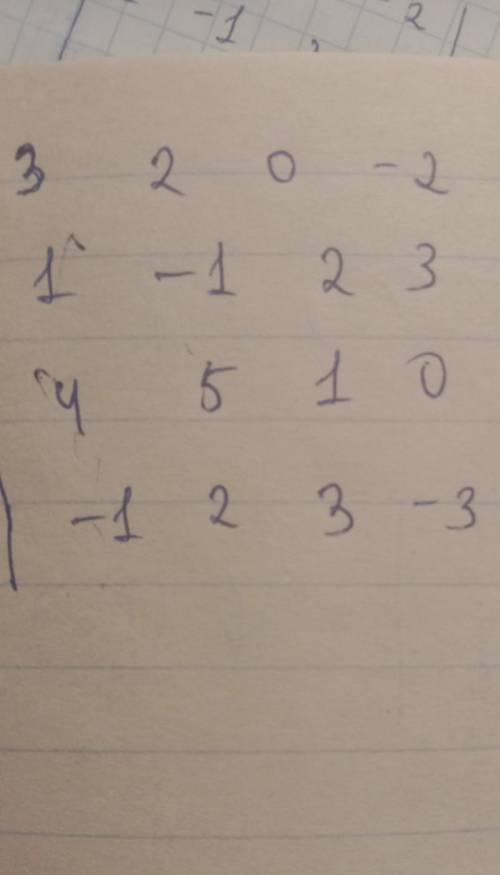 -1 , 2 |
3 2 0 -2
1 -1 2 3
4 5 1 0
| -1 2 3 -3